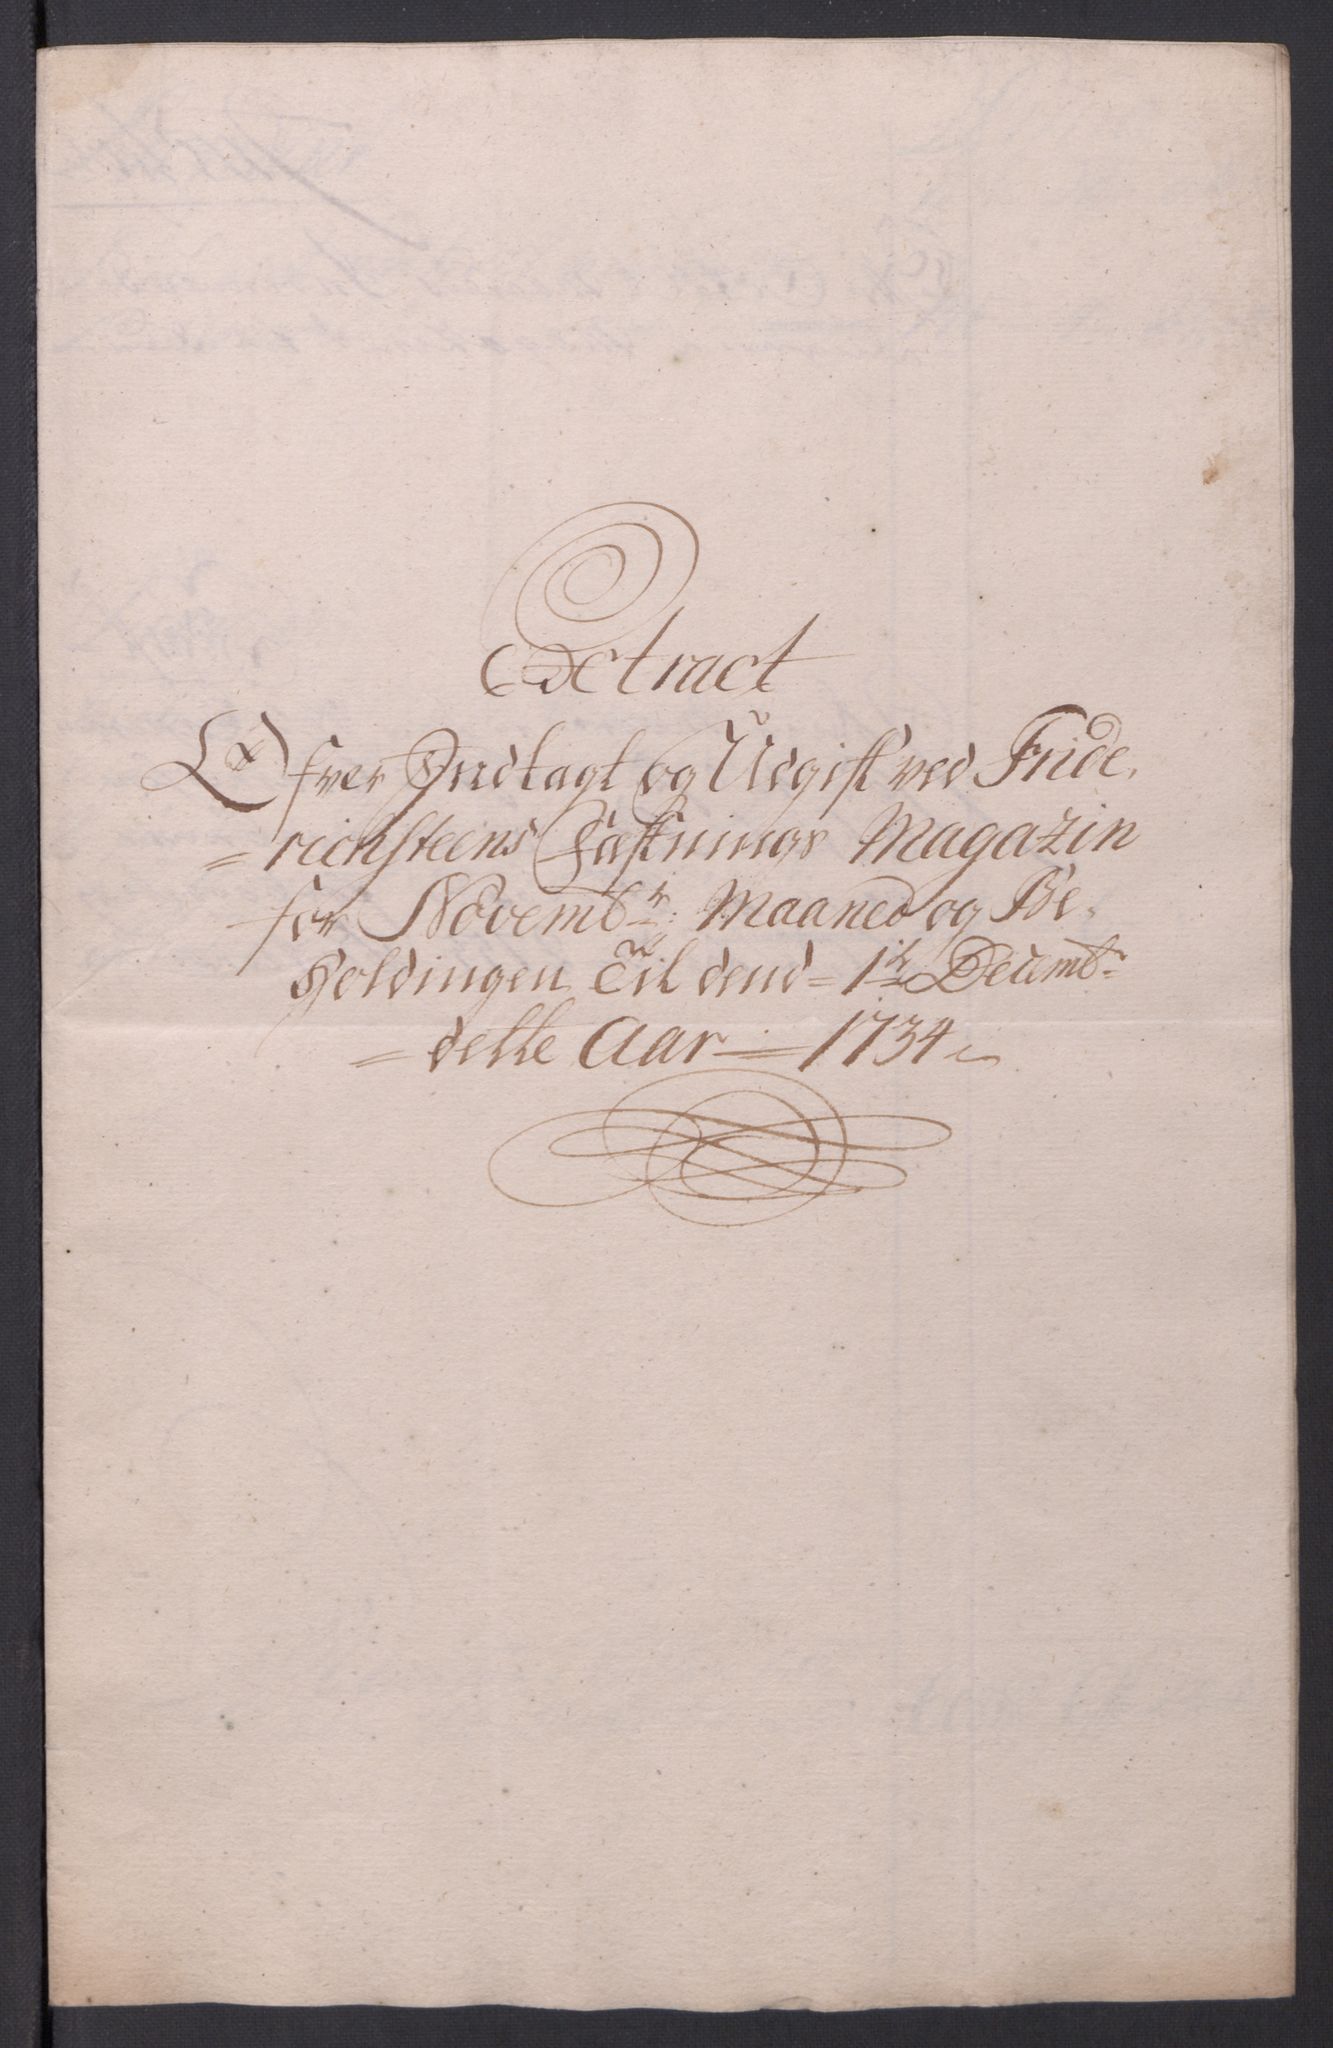 Extract
Ofver Indtagt og Udgift ved Fride,
= richsteens Fæstnings Magazin
for Novembr: Maaned og Be,
holdingen Til dend = 1te Decembr
= dette Aar — 1734